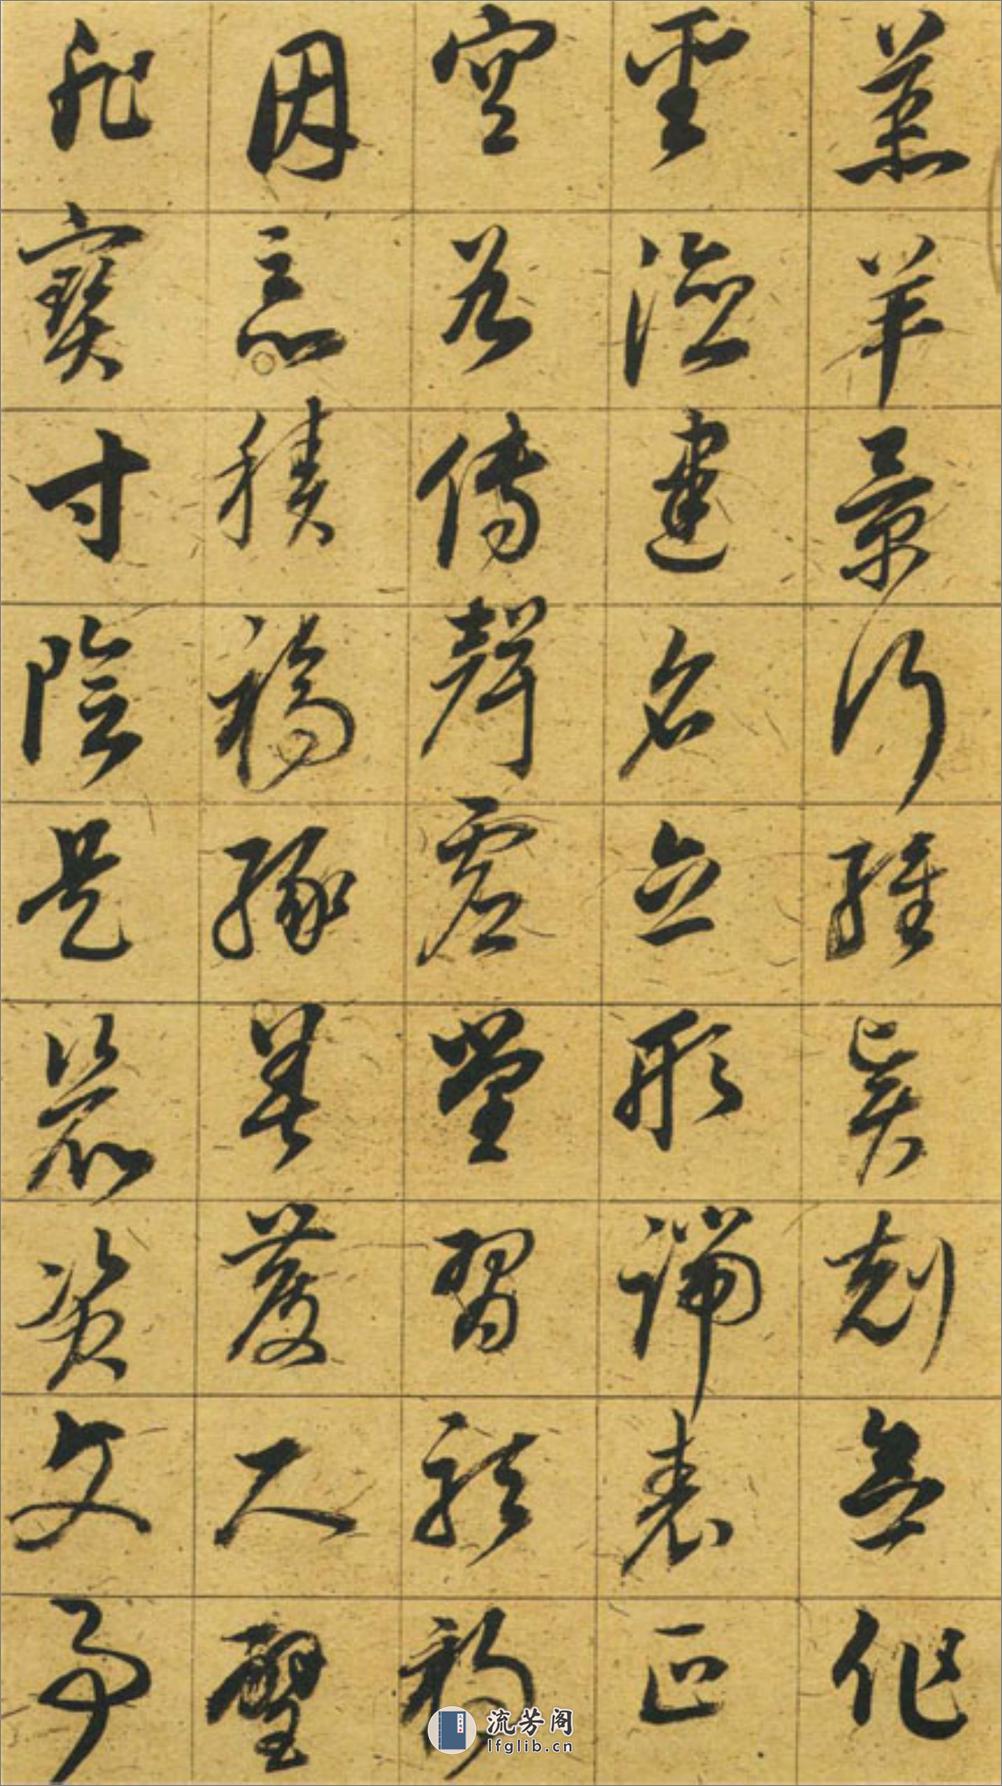 羔羊景行維賢剋念作
聖德建名立形端表正
空谷傳聲虛堂習聽禍
因惡積福緣善慶尺璧
非寶寸陰是競資父事
流芳阁
lfglib.cn